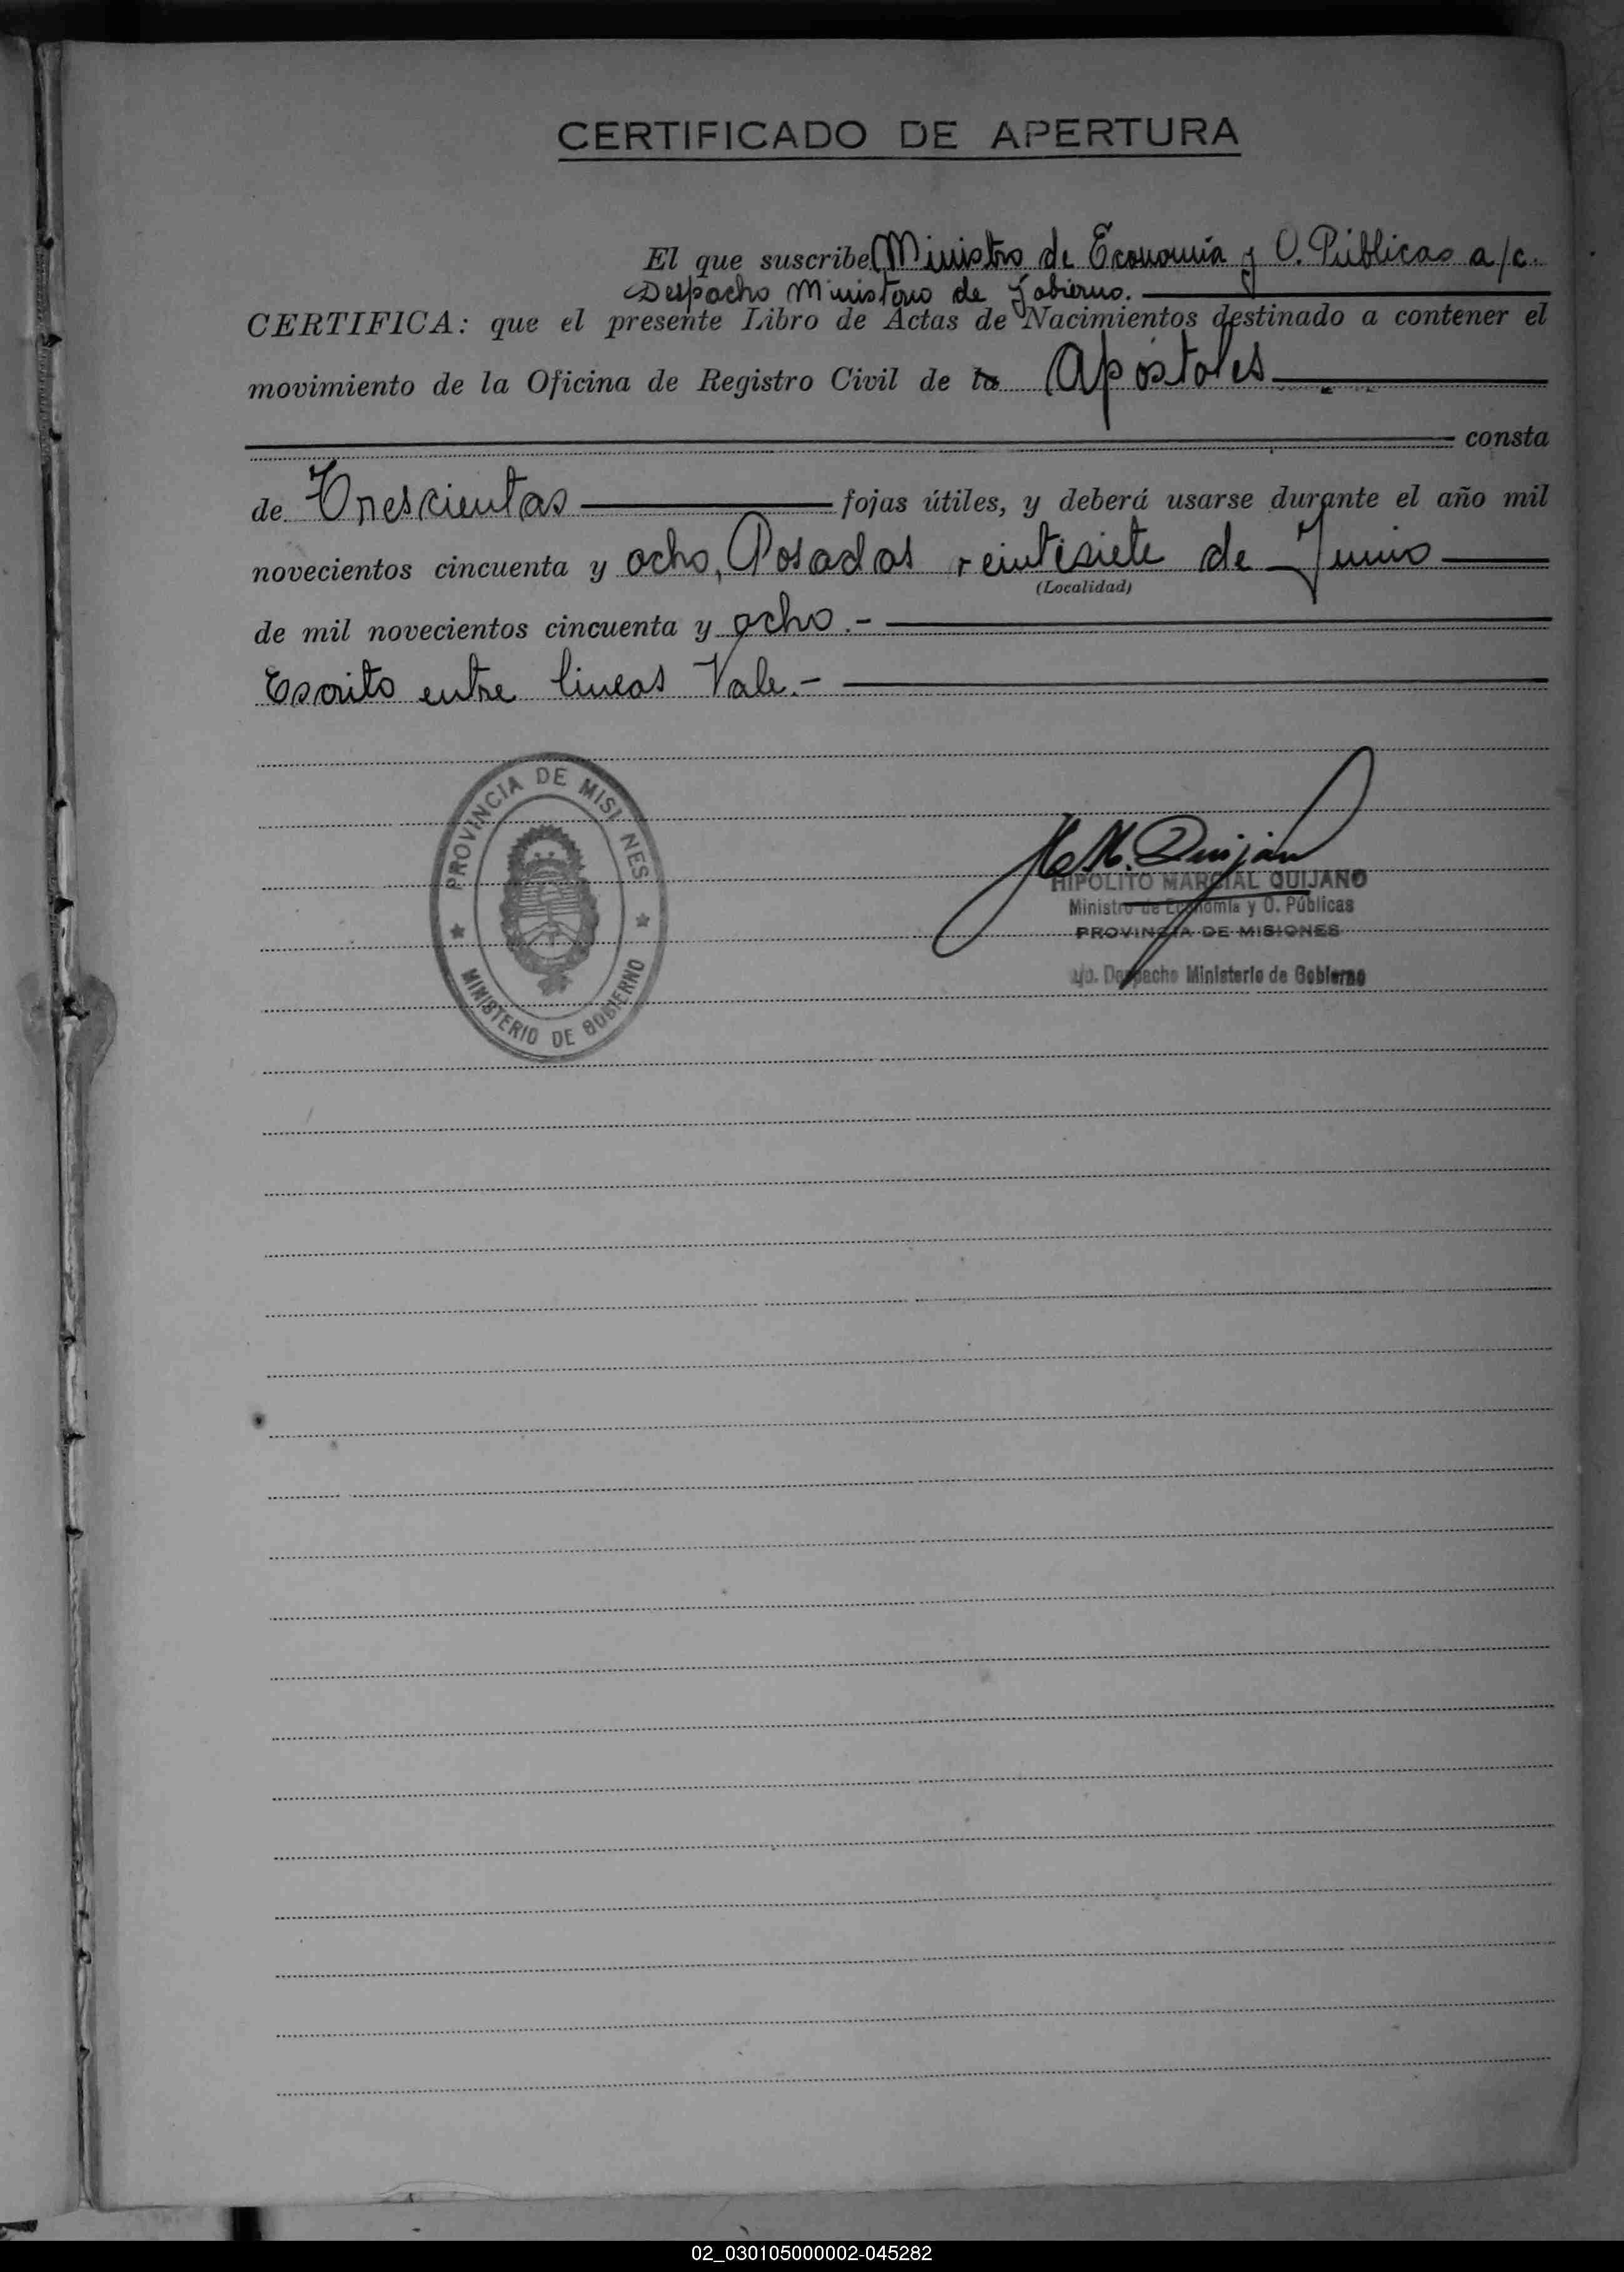 CERTIFICADO DE APERTURA
El que suscribe Ministro de Economía y O. Públicas a/c.
Despacho Ministerio de Gobierno.
CERTIFICA: que el presente Libro de Actas de Nacimientos destinado a contener el
movimiento de la Oficina de Registro Civil de la Apóstoles
consta
de Trescientas fojas útiles, y deberá usarse durante el año mil
novecientos cincuenta y ocho, Posadas veintisiete de Junio
(Localidad)
de mil novecientos cincuenta y ocho.-
Escrito entre lineas Vale.-
PROVINCIA DE MISIONES
MINISTERIO DE GOBIERNO
H. M. Quijano
HIPOLITO MARCIAL QUIJANO
Ministro de Economía y O. Públicas
PROVINCIA DE MISIONES
Despacho Ministerio de Gobierno
02_030105000002-045282